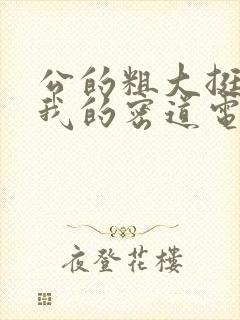 公的粗大挺
我的密道電
夜登花樓